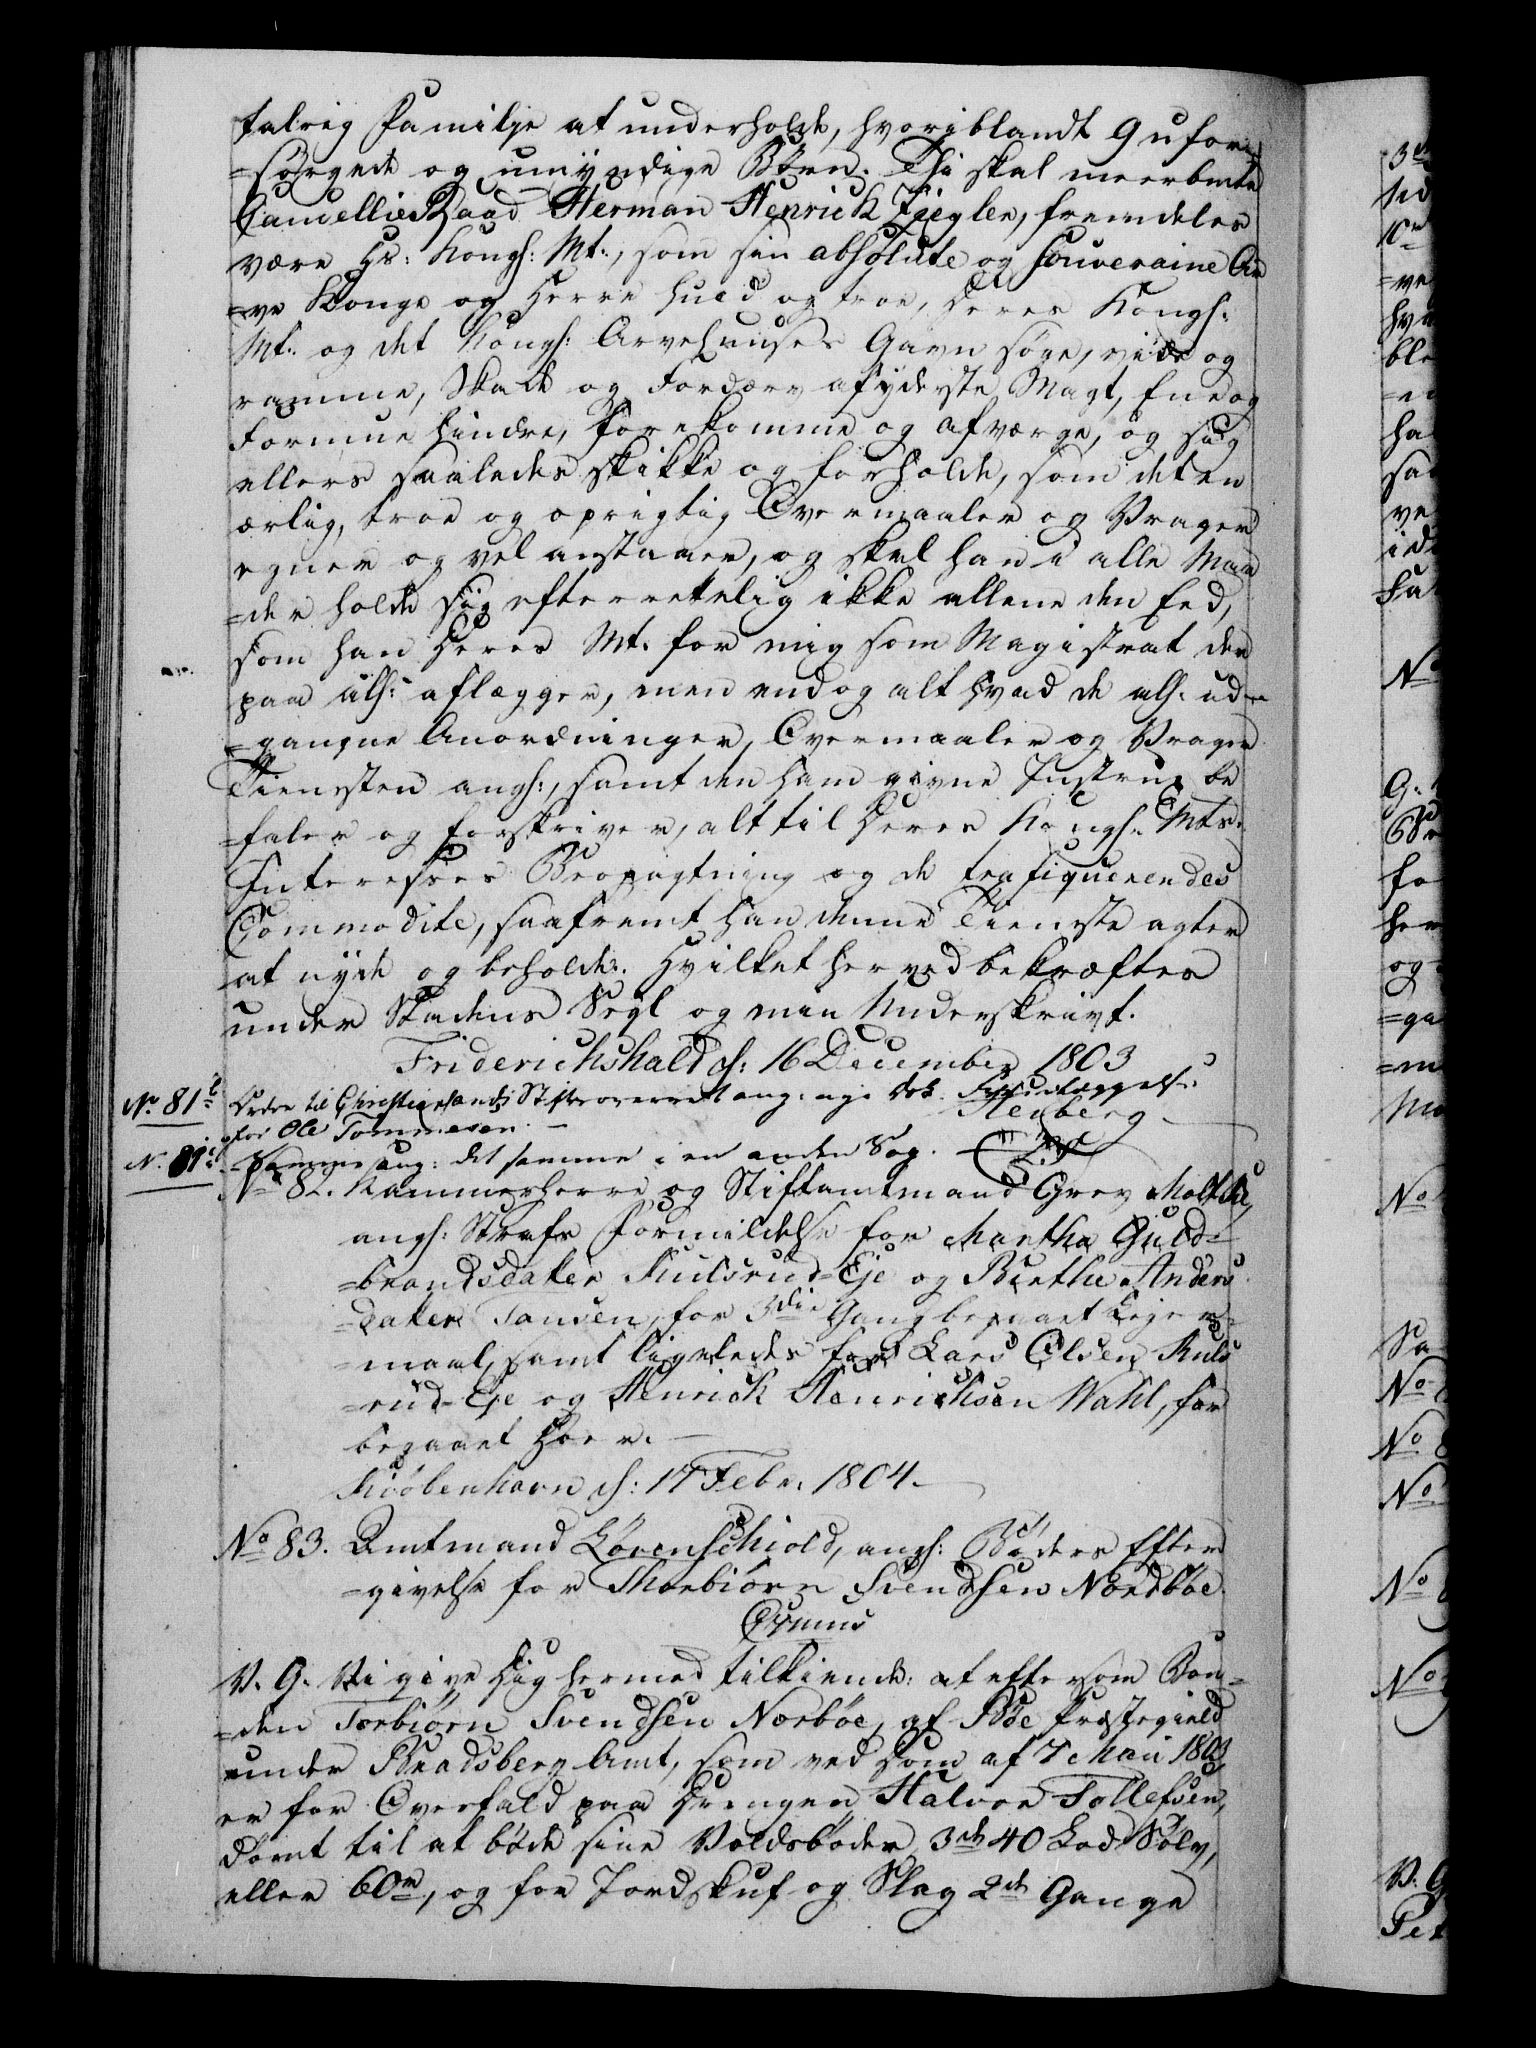 talrig Familje at underholde, hvoriblandt 9 ufor-
=sørgede og umyndige Børn. Thi skal meerbmte
Cancellie Raad Herman Henrich Ziegler, fremdeles
være Hs: Kongl: Mt:, som sin absolute og souveraine Ar
=ve Konge og Herre huld og troe, Deres Kongl:
Mt: og det Kongl: Arvehuuses Gavn søge, vide og
ramme, Skade og Fordærv af yderste Magt, Evne og
Formue hindre, forekomme og afværge, og sig
ellers saaledes skikke og forholde, som det en
ærlig, troe og oprigtig Overmaaler og Vrager
egner og vel anstaaer, og skal han i alle Maa
=der holde sig efterrettelig ikke allene den Eed,
som han Deres Mt: for mig som Magistrat der
paa all: aflægger, men endog alt hvad de all: ud-
=gangne Anordninger, Overmaaler og Vrager
Tienesten angl:, samt den ham givne Instrux be
=faler og forskriver, alt til Deres Kongl: Mts:
Interesses Beobagtning og de trafiquerendes
Commodite, saafremt han denne Tieneste agter
at nyde og beholde. Hvilket herved bekræftes
under Stadens Segl og min Underskrivt.
Friderichshald d: 16 December 1803
No. 81 b Ordre til Christiansands Stiftsoverret ang: nye Dok. Fremlæggelse
for Ole Tommesen. — Heuberg
N. 81 c Samme ang: det samme i en anden Sag.
No 82. Kammerherre og Stiftamtmand Grev Moltke,
angl: Straffe Formildelse for Martha Guld-
=brandsdatter Kulsrud-Eje og Birthe Anders
=datter Tansen, for 3die Gang begaaet Lejer-
=maal, samt ligeledes for Lars Olsen Kuls
=rud-Eje og Henrick Henrichsen Wahl, for
begaaet Hoer. —
Kiøbenhavn d: 17 Febr. 1804. —
No 83. Amtmand Løvenschiold, angl: Bøders Efter
=givelse for Thorbiørn Svendsen Nordbøe.
V. G. Vi give Dig hermed tilkiende: at eftersom Bon-
=den Torbiørn Svendsen Norbøe, af Bøe Præstegield
under Bradsberg Amt, som ved Dom af 7 Maii 1803
er for Overfald paa Drengen Halvor Tollefsen,
dømt til at bøde sine Voldsbøder, 3de 40 Lod Sølv,
eller 60 r, og for Jordskuf og Slag 2de Gange